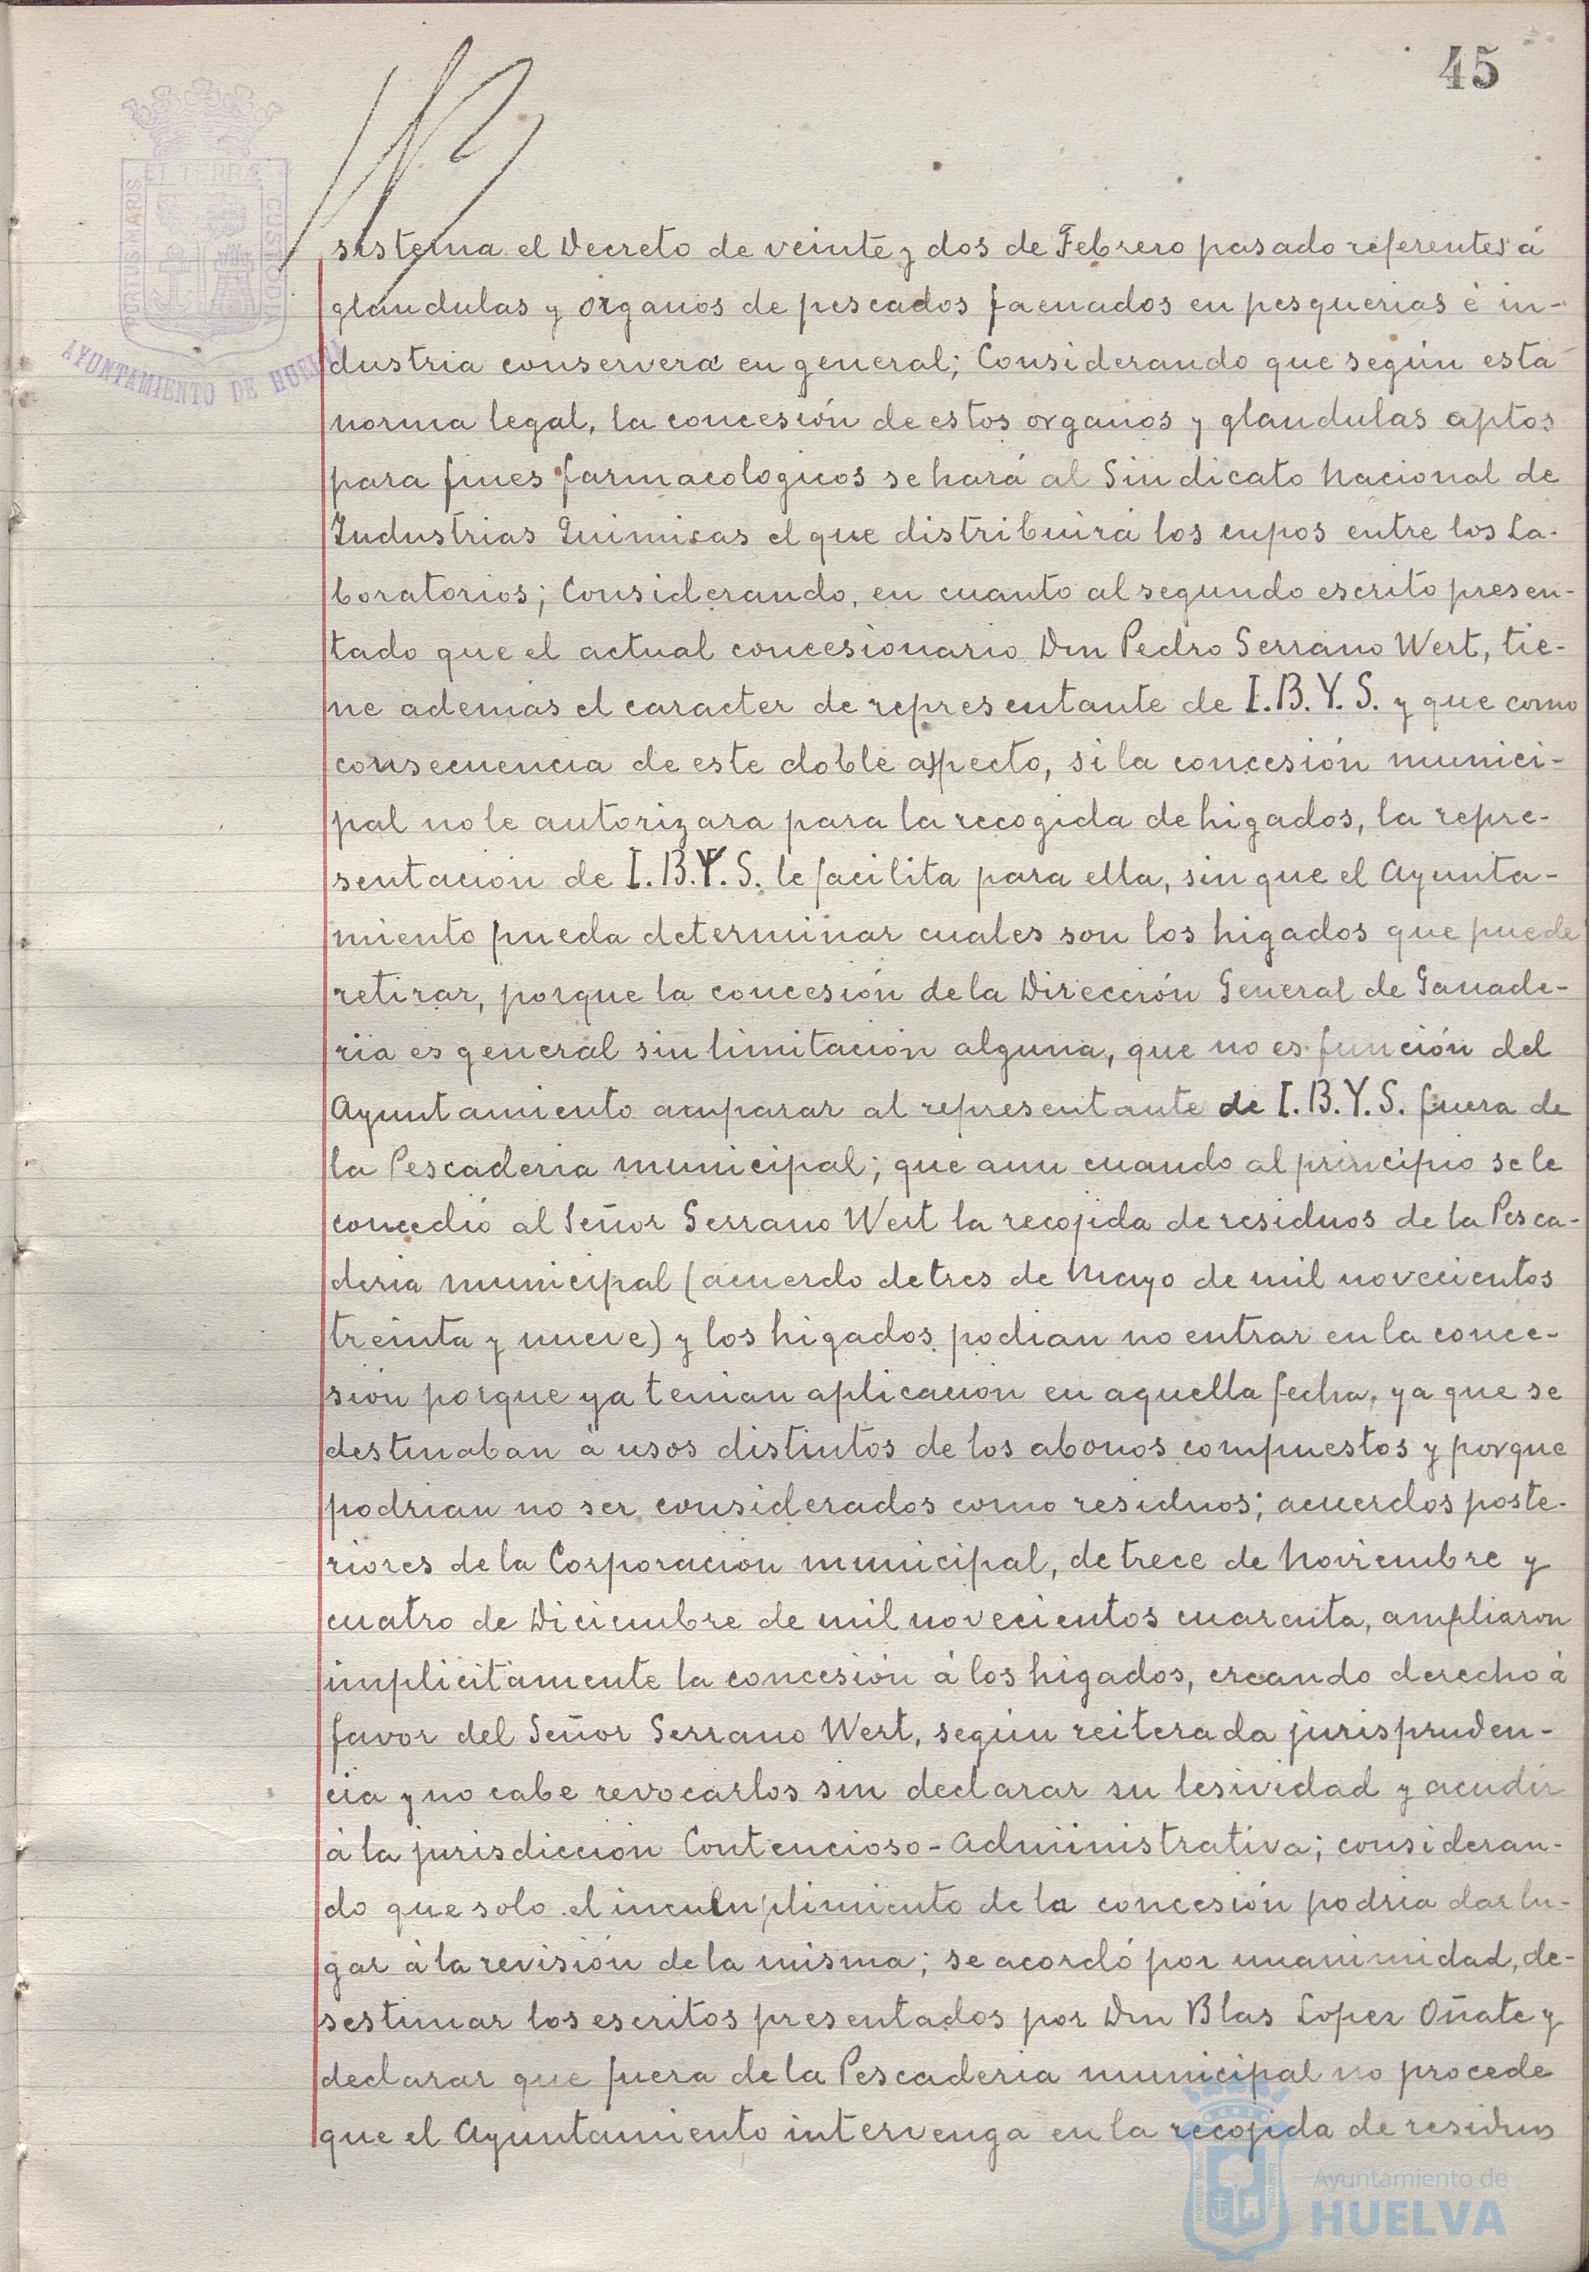 45
PORTUS MARIS
ET TERRÆ
CUSTODIA
AYUNTAMIENTO DE HUELVA
sistema el Decreto de veinte y dos de Febrero pasado referentes á
glandulas y organos de pescados faenados en pesquerias é in-
dustria conservera en general; Considerando que según esta
norma legal, la concesión de estos organos y glandulas aptos
para fines farmacologicos se hará al Sindicato Nacional de
Industrias Quimicas el que distribuirá los cupos entre los La-
boratorios; Considerando, en cuanto al segundo escrito presen-
tado que el actual concesionario Don Pedro Serrano Wert, tie-
ne ademas el caracter de representante de I.B.Y.S. y que como
consecuencia de este doble aspecto, si la concesión munici-
pal no le autorizara para la recogida de higados, la repre-
sentación de I.B.Y.S. le facilita para ella, sin que el Ayunta-
miento pueda determinar cuales son los higados que puede
retirar, porque la concesión de la Dirección General de Ganade-
ria es general sin limitación alguna, que no es función del
Ayuntamiento amparar al representante de I.B.Y.S. fuera de
la Pescaderia municipal; que aun cuando al principio se le
concedió al Señor Serrano Wert la recojida de residuos de la Pesca-
deria municipal (acuerdo de tres de Mayo de mil novecientos
treinta y nueve) y los higados podian no entrar en la conce-
sión porque ya tenian aplicación en aquella fecha, ya que se
destinaban á usos distintos de los abonos compuestos y porque
podrian no ser considerados como residuos; acuerdos poste-
riores de la Corporación municipal, de trece de Noviembre y
cuatro de Diciembre de mil novecientos cuarenta, ampliaron
implicitamente la concesión á los higados, creando derecho á
favor del Señor Serrano Wert, según reiterada jurispruden-
cia y no cabe revocarlos sin declarar su lesividad y acudir
á la jurisdicción Contencioso-Administrativa; consideran-
do que solo el incumplimiento de la concesión podria dar lu-
gar á la revisión de la misma; se acordó por unanimidad, de-
sestimar los escritos presentados por Don Blas Lopez Oñate y
declarar que fuera de la Pescaderia municipal no procede
que el Ayuntamiento intervenga en la recojida de residuos
Ayuntamiento de
HUELVA